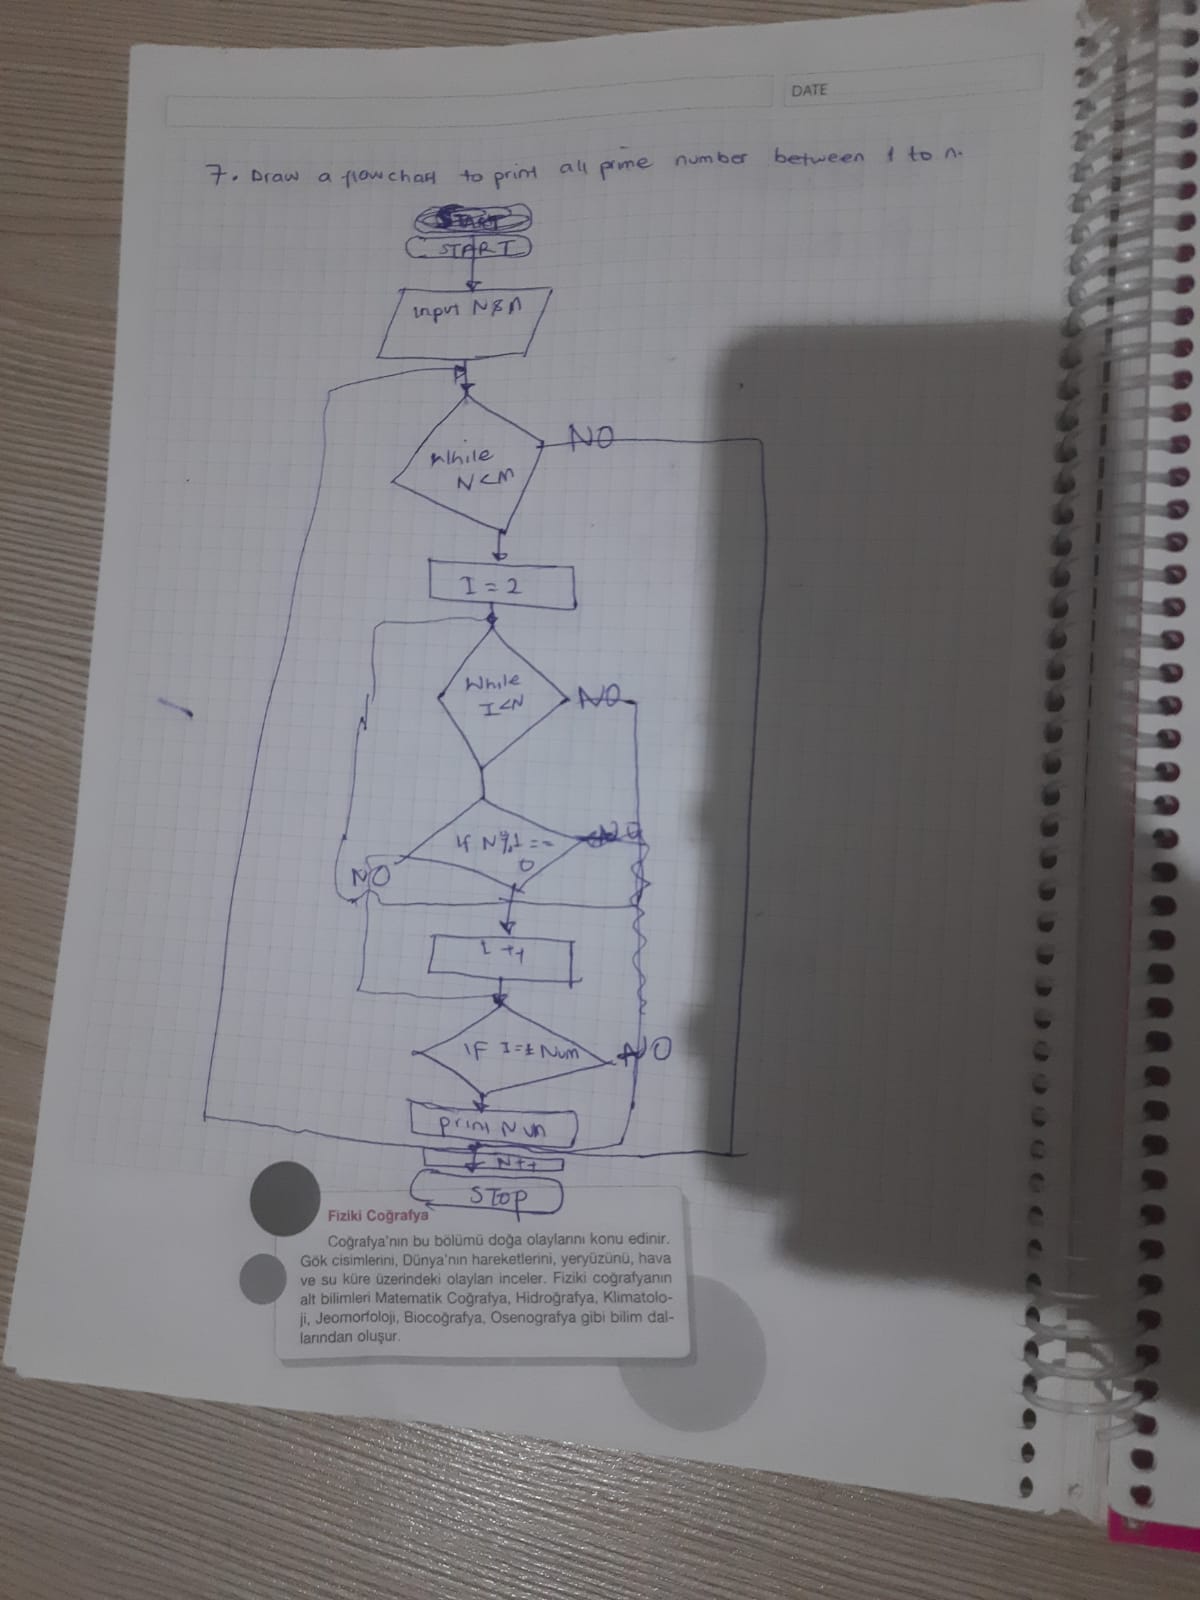 DATE
7. Draw a flowchart to print all prime number between 1 to n.
START
START
input N & M
while
N<M
NO
I = 2
While
I<N
NO
If N%I ==
0
NO
NO
I ++
IF I == Num
NO
print Num
N++
STOP
Fiziki Coğrafya
Coğrafya'nın bu bölümü doğa olaylarını konu edinir.
Gök cisimlerini, Dünya'nın hareketlerini, yeryüzünü, hava
ve su küre üzerindeki olayları inceler. Fiziki coğrafyanın
alt bilimleri Matematik Coğrafya, Hidroğrafya, Klimatolo-
ji, Jeomorfoloji, Biocoğrafya, Osenografya gibi bilim dal-
larından oluşur.